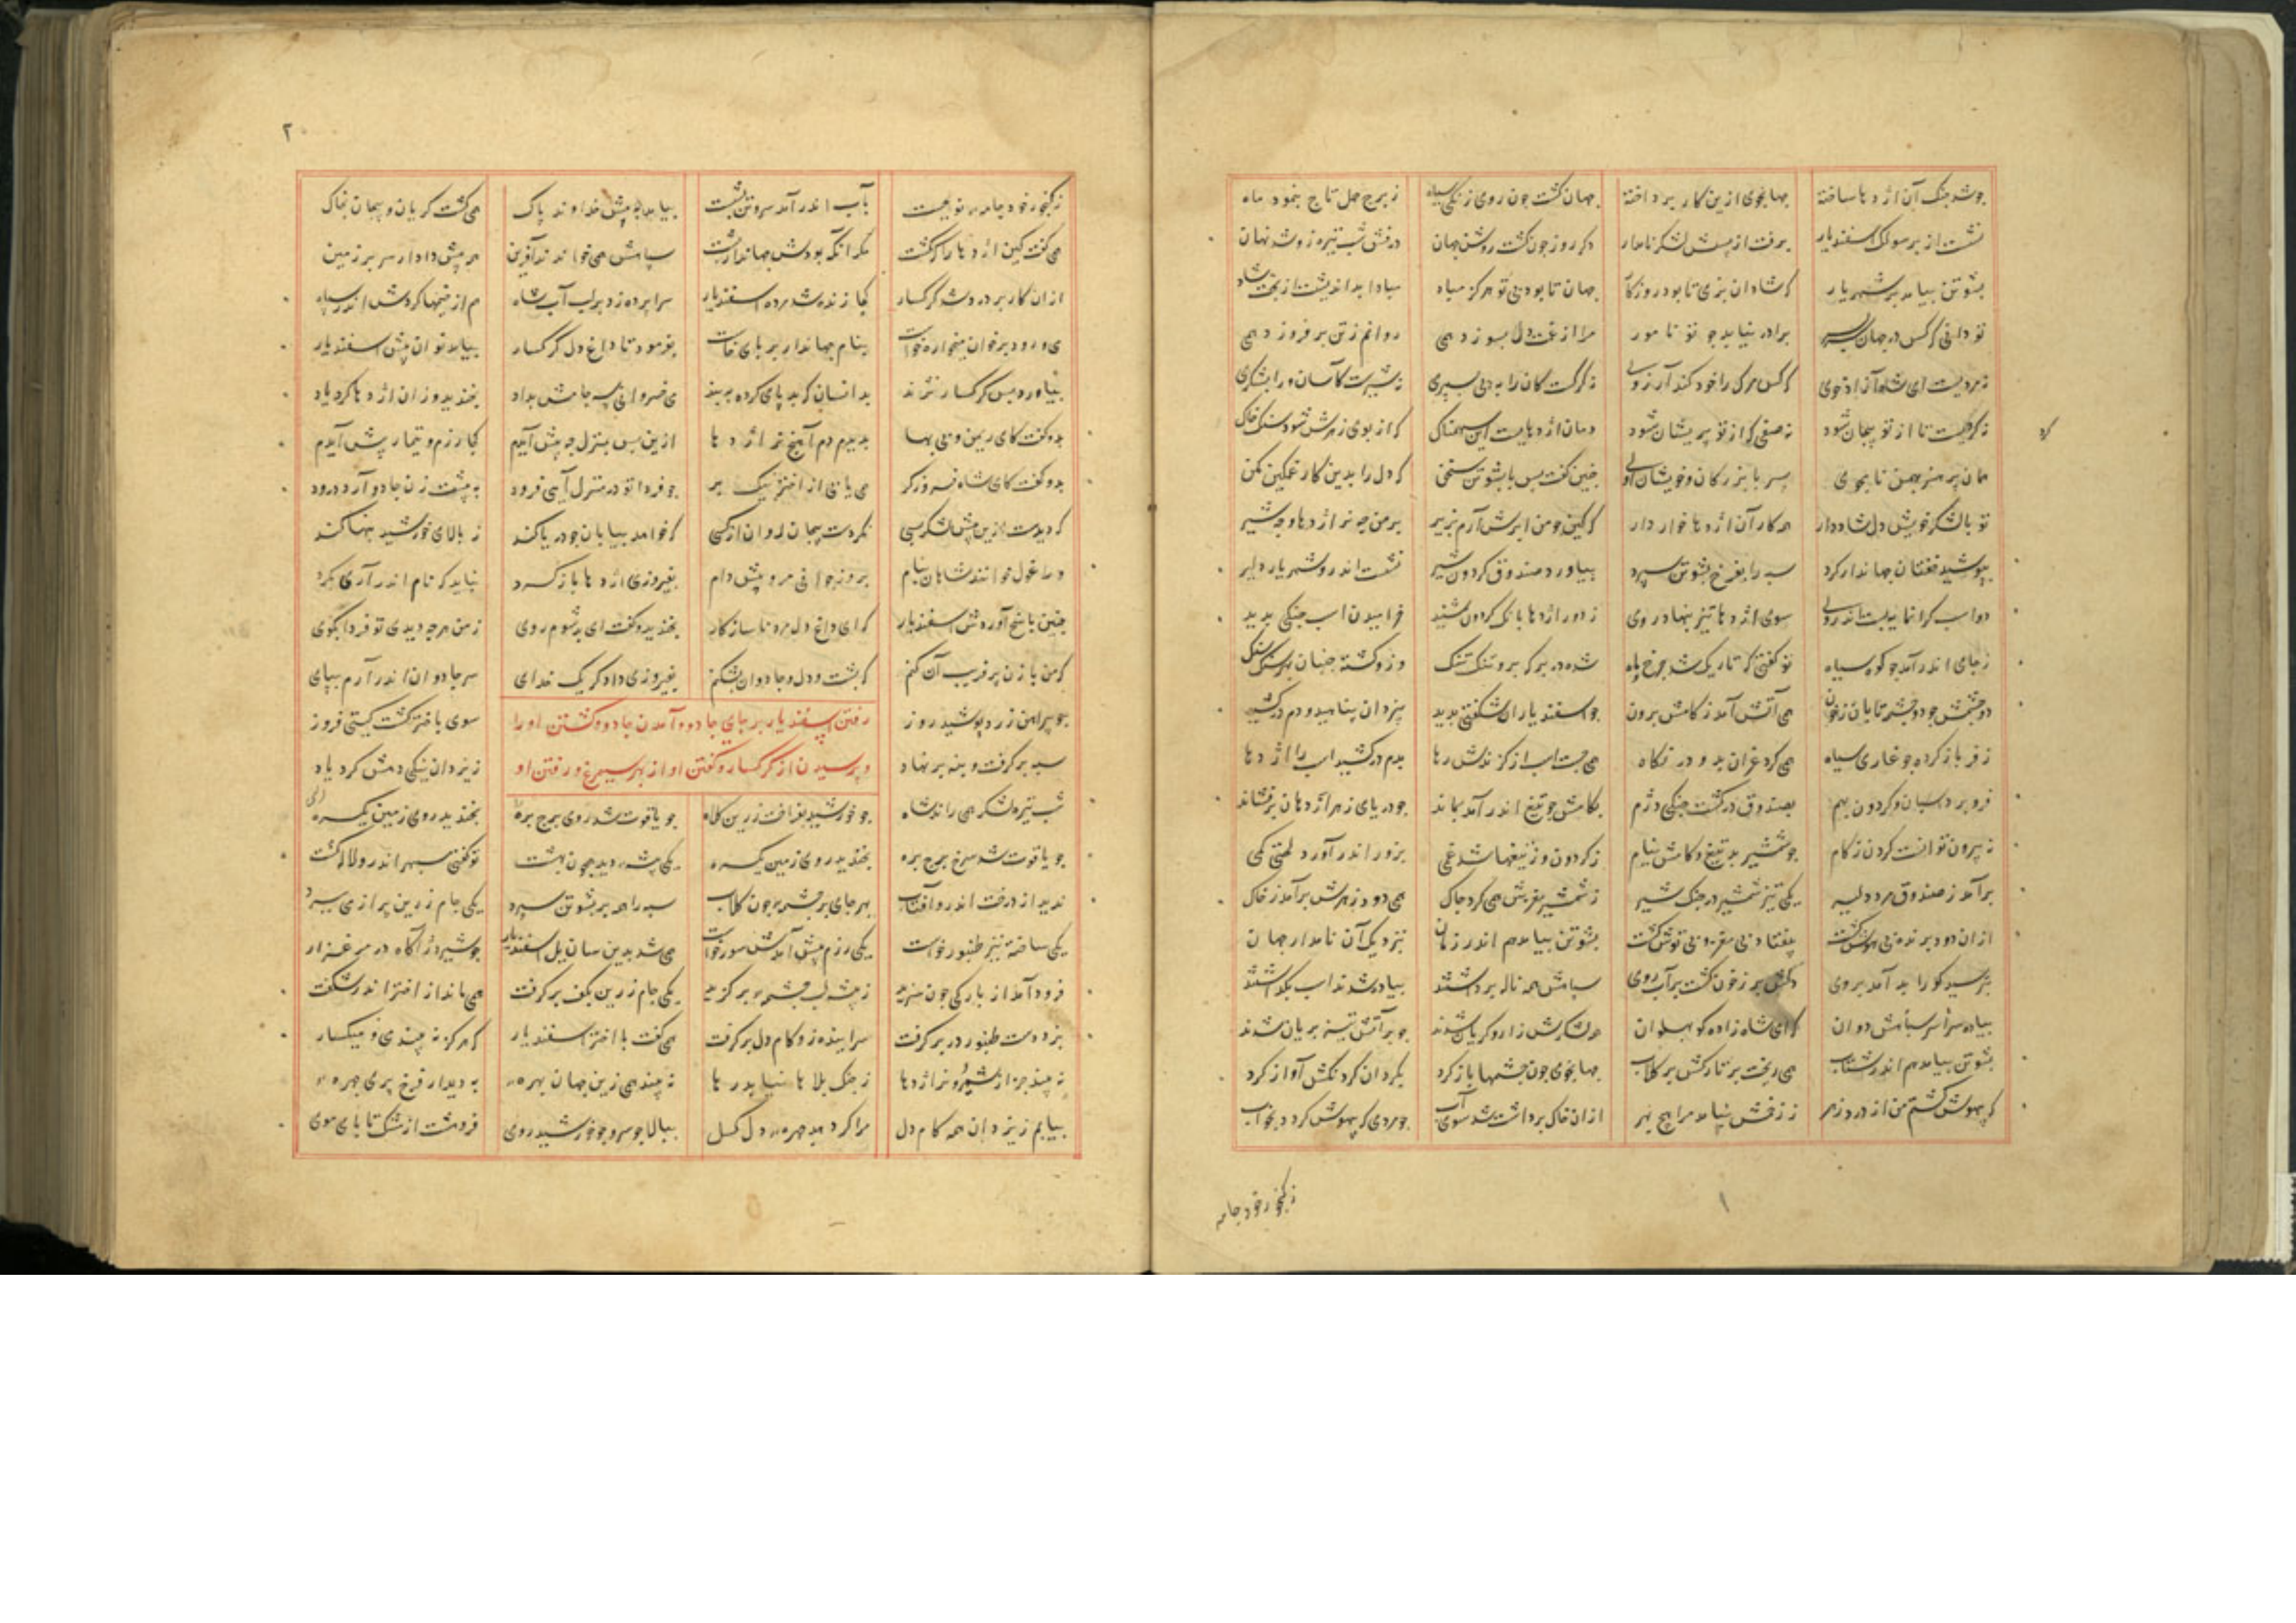 جو شد جنک آن اژدها ساخته جهانجوی ازین کار پرداخته جهان کشت جون روی زنکی سیاه ز برج حمل تاج بنمود ماه
نشست از بر سولک اسفندیار برفت از پسش لشکر نامدار دکر روز جون کشت روشن جهان درفش شب تیره زو شد نهان
بشوتن بیامد بر شهریار که شادان بزی تا بود روزکار جهان تا بود بی تو هرکز مباد مبادا بداندیشت از بخت شاد
تو دانی که کس در جهان سربسر برادر نیابد جو تو نامور مرا از غمت دل بسوزد همی روانم ز تن برفروزد همی
نه مردیست ای شاه آزاده خوی که کس مرک را خود کند آرزوی نه کرکست کان را به پی بسپری نه شیرست کآسان ورا بشکری
نه کرکیست تا از تو پیجان شود نه صفی که از تو پریشان شود دمان اژدهایست این سهمناک که از بوی زهرش شود سنک خاک
همان پرهنر بهمن نامجوی پسر با بزرکان و خویشان اوی جنین کفت پس با بشوتن سخن که دل را بدین کار غمکین مکن
تو با لشکر خویش دل شاد دار همه کار آن اژدها خوار دار که کین جو من ابرش آرم بزیر بر من جه نر اژدها و جه شیر
بپوشید خفتان جهاندار کرد سپه را بفرخ بشوتن سپرد بیاورد صندوق کردون شیر نشست اندرو شهریار دلیر
دو اسب کرانمایه بست اندروی سوی اژدها تیز بنهاد روی ز دور اژدها بانک کردون شنید خرامیدن اسب جنکی بدید
ز جای اندر آمد جو کوه سیاه تو کفتی که تاریک شد جرخ و ماه
دو جشمش جو دو جشمه تابان ز خون همی آتش آمد ز کامش برون جو اسفندیار آن شکفتی بدید بیزدان پناهید و دم درکشید
زفر باز کرده جو غاری سیاه همی کرد غران بدو در نکاه همی جست اسب از کزندش رها بدم درکشید اسب را اژدها
فرو برد اسبان و کردون بهم بصندوق در کشت جنکی دژم بکامش جو تیغ اندر آمد بماند جو دریای زهر اژدها زان برفشاند
نه بیرون توانست کردن ز کام جو شمشیر بد تیغ و کامش نیام ز کردون وز تیغها شد غمی بزور اندر آورد لختی کمی
برآمد ز صندوق مرد دلیر یکی تیز شمشیر در جنک شیر ز شمشیر مغزش همی کرد جاک همی دود زهرش برآمد ز خاک
از آن دود برنده بی هوش کشت بیفتاد بی مغز و بی توش کشت بشوتن بیامد هم اندر زمان بنزدیک آن نامدار جهان
بترسید کو را بد آمد بروی دلش پر ز خون کشت پر آب روی سپاهش همه ناله برداشتند پیاده شدند اسب بکذاشتند
بشوتن بیامد هم اندر شتاب همی ریخت بر تارکش بر کلاب جهانجوی جون جشمها باز کرد بکردان کردنکش آواز کرد
که بیهوش کشتم من از درد زهر ز زخمش نیامد مرا هیچ بهر از آن خاک برداشت شد سوی آب جو مردی که بیهوش کردد بخواب
ز کنجور خود جامه
ز کنجور خود جامه نو بجست بآب اندر آمد سر و تن بشست بیامد به پیش خداوند پاک همی کشت کریان و پیجان بخاک
همی کفت کین اژدها را که کشت مکر آنکه بودش جهاندار پشت سپاهش همی خواندند آفرین همه پیش دادار سر بر زمین
از آن کار پر درد شد کرکسار کجا زنده شد مرده اسفندیار سراپرده زد بر لب آب شاه هم از خیمها کردش اندر سپاه
می و رود بر خوان و میخواره خواست بنام جهاندار بر پای خاست بفرمود تا داغ دل کرکسار بیامد نوان پیش اسفندیار
می خسروانی سه جامش بداد بخندید وز آن اژدها کرد یاد
بدو کفت کای ریمن و بی بها بدیدم دم آهنج نر اژدها ازین پس بمنزل جه پیش آیدم کجا رزم و تیمار پیش آیدم
بدو کفت کای شاه فیروزکر همی یابی از اختر نیک بر جو فردا تو در منزل آیی فرود به پیشت زن جادو آرد درود
که دیدست ازین پیش لشکر بسی نکردست پیجان روان از کسی که خواهد بیابان جو دریا کند ز بالای خورشید پهنا کند
ورا غول خوانند شاهان بنام بروز جوانی مرو پیش دام بفیروزی اژدها باز کرد نباید که نام اندر آری بکرد
جنین پاسخ آوردش اسفندیار که ای داغ دل مرد ناسازکار بخندید و کفت ای بد شوم روی ز من هرجه دیدی تو فردا بکوی
که من با زن پرفریب آن کنم که پشت و دل جادوان بشکنم بفیروزی دادکر یک خدای سر جادوان اندر آرم بپای
جو پیراهن زرد پوشید روز سوی باختر کشت کیتی فروز
رفتن اسفندیار بر جای جادو و آمدن جادو و کشتن او را
و پرسیدن از کرکسار و کفتن او از بهر سیمرغ و رفتن او
سپه بر کرفت و بنه بر نهاد ز یزدان نیکی دهش کرد یاد
شب تیره لشکر همی راند شاه جو خورشید بفراخت زرین کلاه جو یاقوت شد روی برج بره بخندید روی زمین یکسره
جو یاقوت شد سرخ برج بره بخندید روی زمین یکسره یکی بیشه دید همجون بهشت تو کفتی سپهر اندرو لاله کشت
ندید از درخت اندرو آفتاب بهر جای بر جشمه جون کلاب سپه را همه بر بشوتن سپرد یکی جام زرین پر از می ببرد
یکی ساخته نیز طنبور خواست همی شد بدین سان یل اسفندیار جو شیر دژآکاه در مرغزار
یکی جام زرین بکف بر کرفت همی ماند از اختر اندر شکفت
بزد دست طنبور در بر کرفت سراینده زو کام دل بر کرفت همی کفت با اختر اسفندیار که هرکز نه بیند می و میکسار
نه بیند جز از شیر و نر اژدها ز جنک بلاها نیابد رها نه بیند همی زین جهان بهره به دیدار فرخ پری جهره
بیابم ز یزدان همه کام دل مرا کر دهد جهره دل کسل ببالا جو سرو و جو خورشید روی فروهشته از مشک تا پای موی